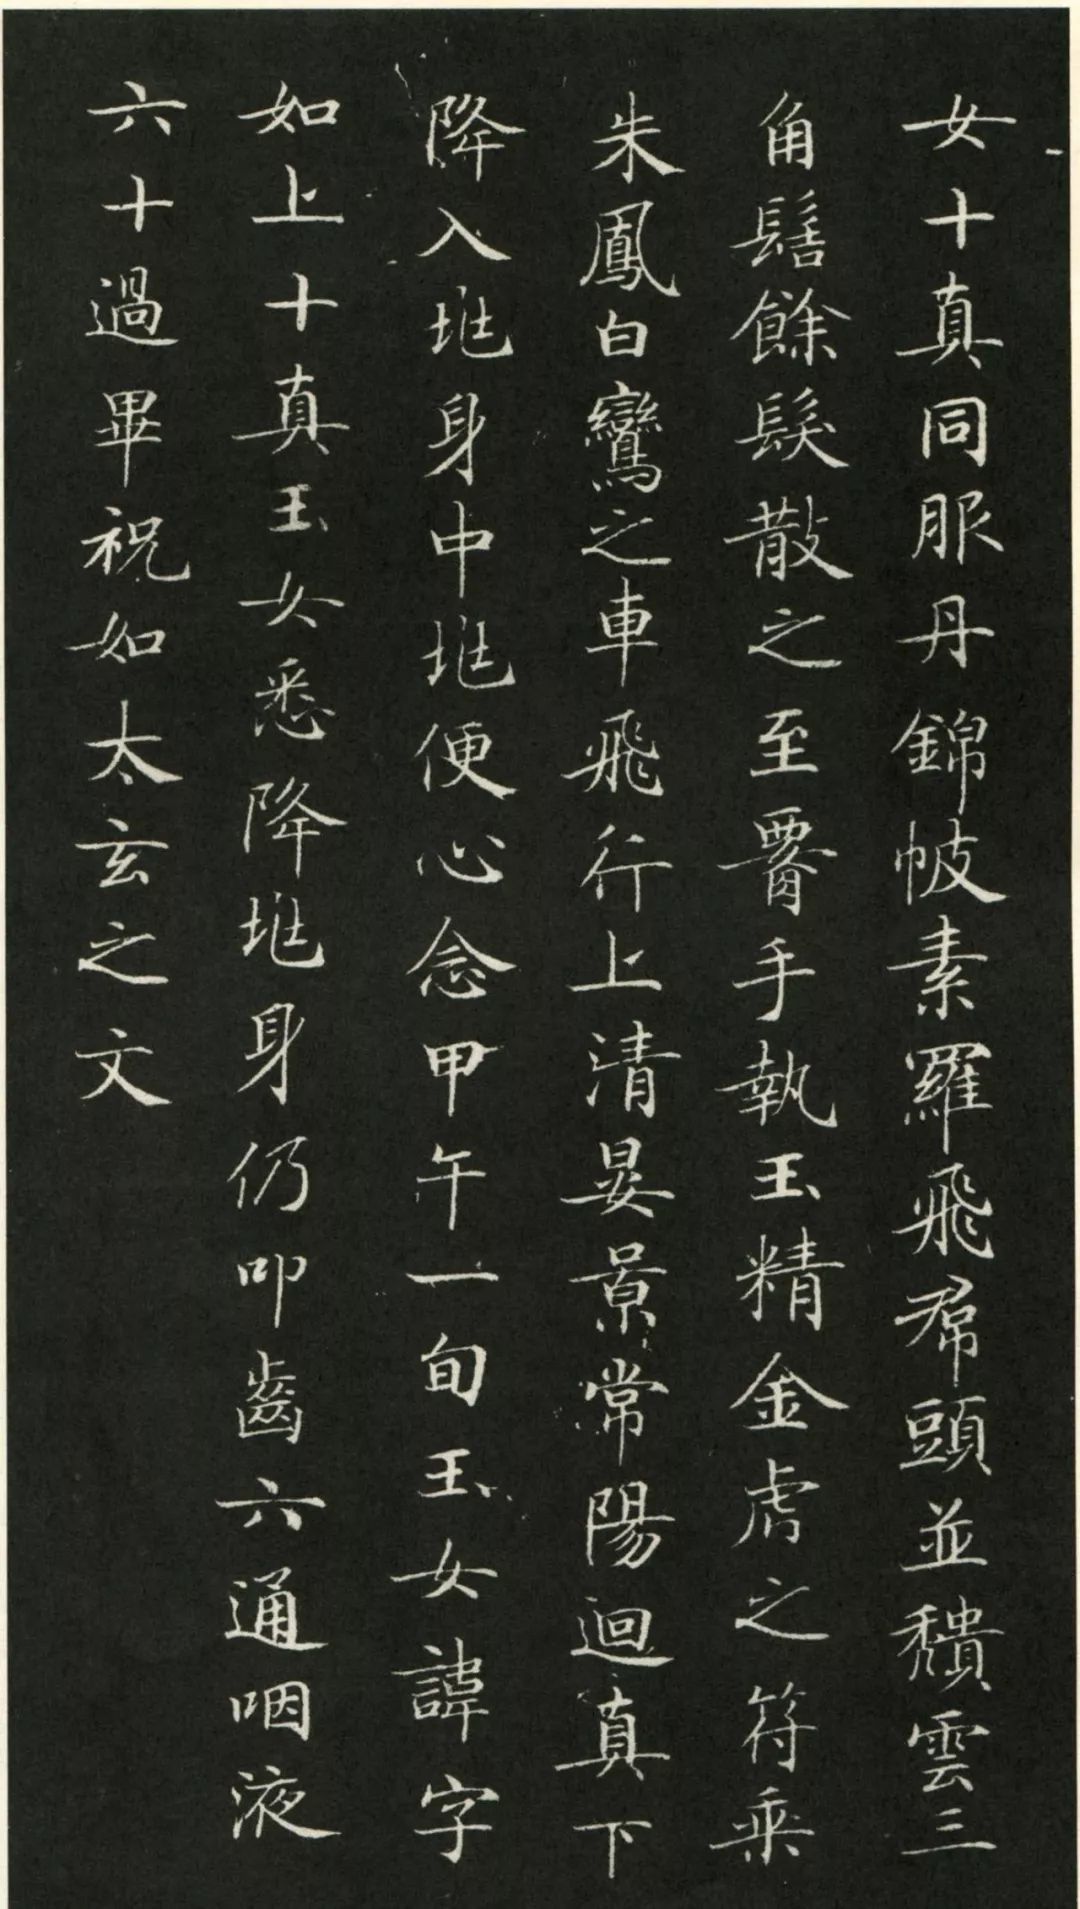 女十真同服丹錦帔素羅飛帬頭並穨雲三
角髻餘髮散之至䙴手執玉精金虎之符乗
朱鳳白鸞之車飛行上清晏景常陽迴真下
降入坨身中坨便心念甲午一旬玉女諱字
如上十真玉女悉降坨身仍叩齒六通咽液
六十過畢祝如太玄之文